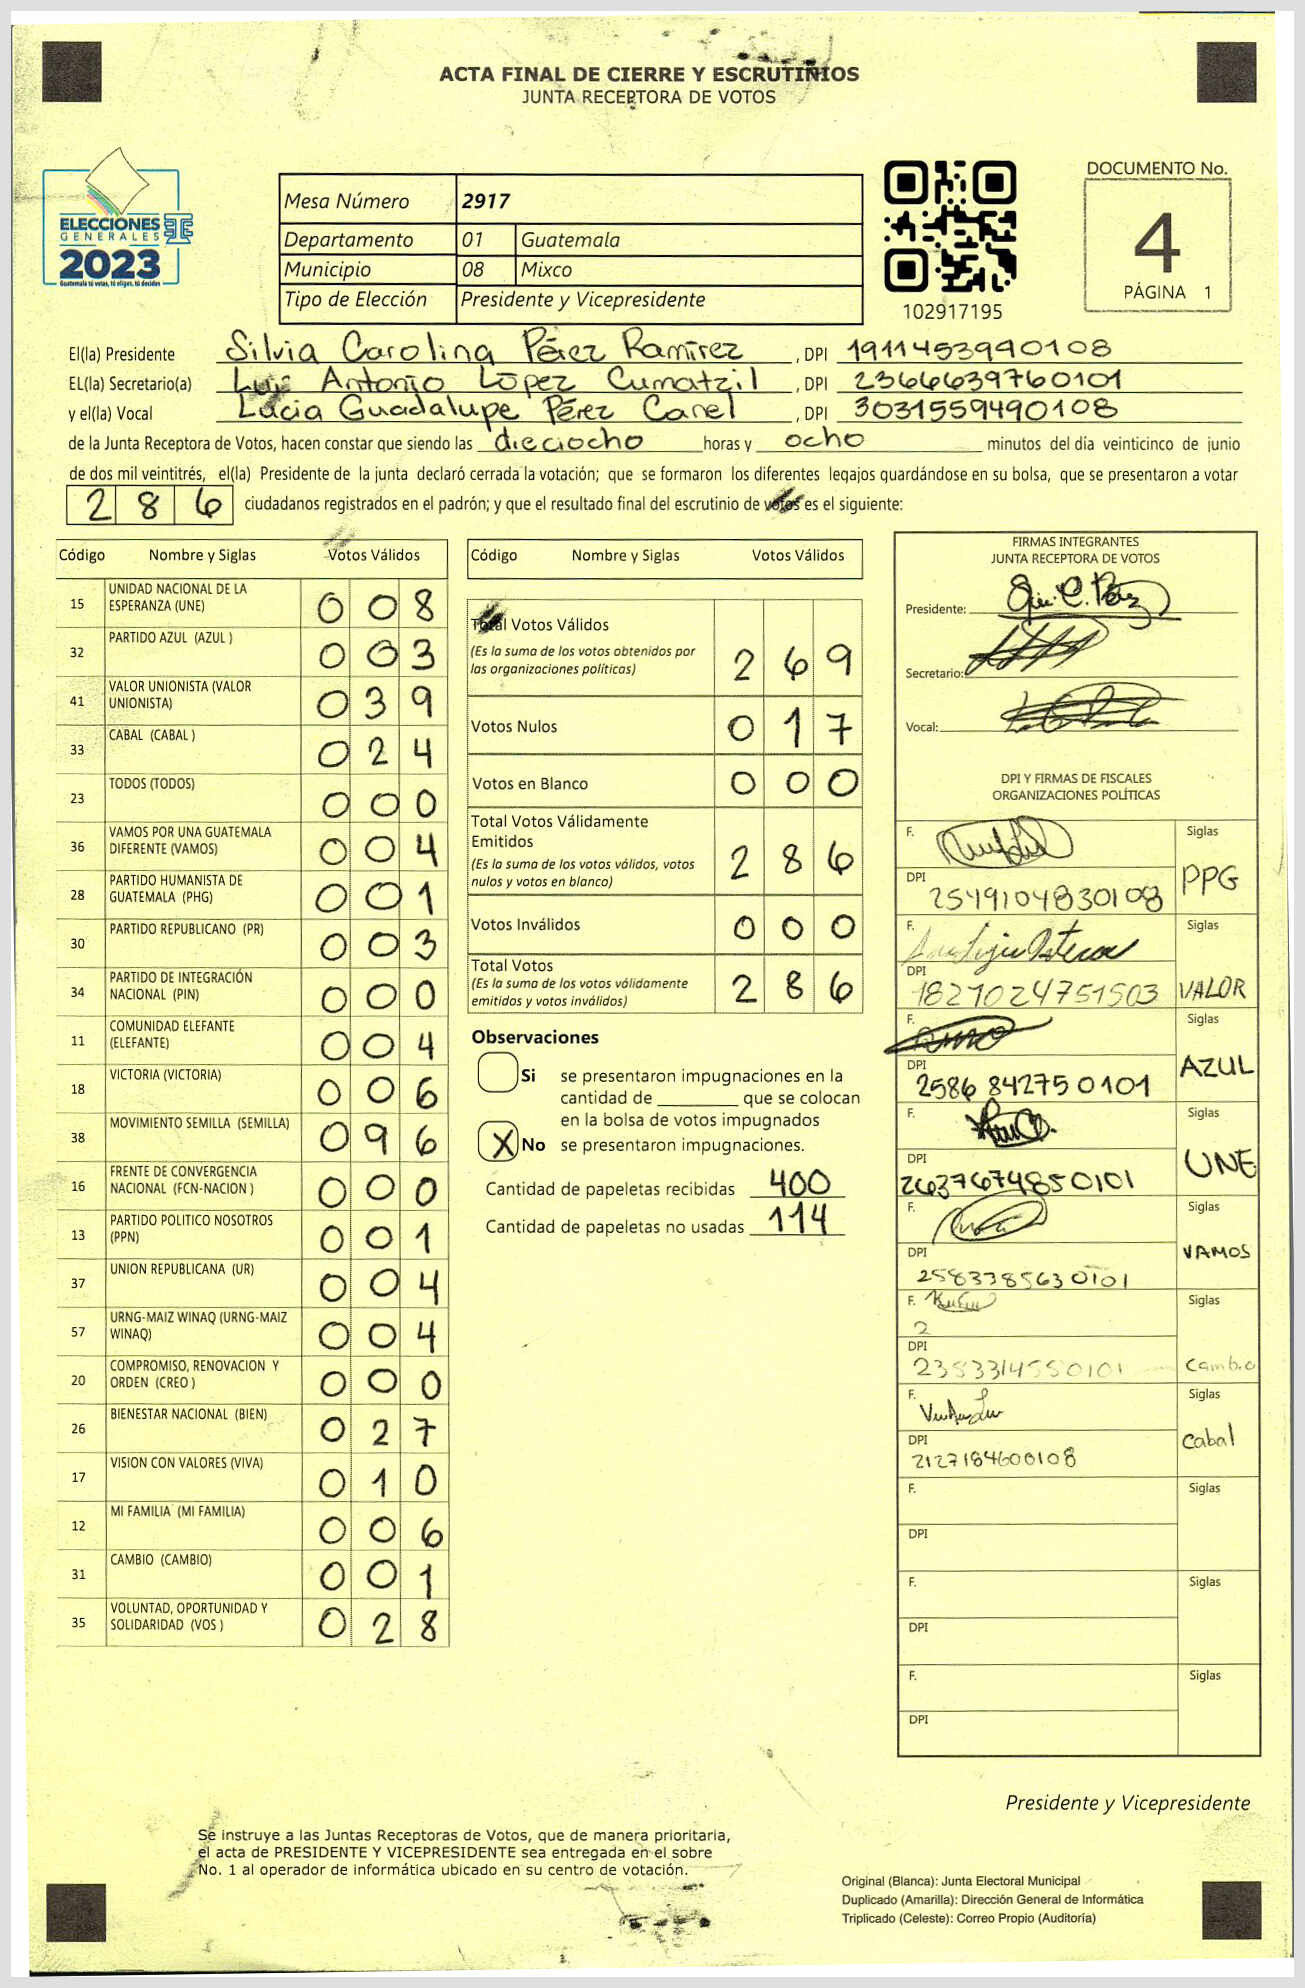 ACTA FINAL DE CIERRE Y ESCRUTINIOS
JUNTA RECEPTORA DE VOTOS
ELECCIONES
GENERALES
2023
Guatemala tú votas, tú eliges, tú decides
Mesa Número 2917
Departamento 01 Guatemala
Municipio 08 Mixco
Tipo de Elección Presidente y Vicepresidente
102917195
DOCUMENTO No.
4
PÁGINA 1
El(la) Presidente Silvia Carolina Pérez Ramírez , DPI 1911453990108
EL(la) Secretario(a) Luis Antonio López Cumatzil , DPI 2366639760101
y el(la) Vocal Lucia Guadalupe Pérez Canel , DPI 3031559490108
de la Junta Receptora de Votos, hacen constar que siendo las dieciocho horas y ocho minutos del día veinticinco de junio
de dos mil veintitrés, el(la) Presidente de la junta declaró cerrada la votación; que se formaron los diferentes legajos guardándose en su bolsa, que se presentaron a votar
286 ciudadanos registrados en el padrón; y que el resultado final del escrutinio de votos es el siguiente:
Código Nombre y Siglas Votos Válidos
15 UNIDAD NACIONAL DE LA
ESPERANZA (UNE) 008
32 PARTIDO AZUL (AZUL ) 003
41 VALOR UNIONISTA (VALOR
UNIONISTA) 039
33 CABAL (CABAL ) 024
23 TODOS (TODOS) 000
36 VAMOS POR UNA GUATEMALA
DIFERENTE (VAMOS) 004
28 PARTIDO HUMANISTA DE
GUATEMALA (PHG) 001
30 PARTIDO REPUBLICANO (PR) 003
34 PARTIDO DE INTEGRACIÓN
NACIONAL (PIN) 000
11 COMUNIDAD ELEFANTE
(ELEFANTE) 004
18 VICTORIA (VICTORIA) 006
38 MOVIMIENTO SEMILLA (SEMILLA) 096
16 FRENTE DE CONVERGENCIA
NACIONAL (FCN-NACION ) 000
13 PARTIDO POLITICO NOSOTROS
(PPN) 001
37 UNION REPUBLICANA (UR) 004
57 URNG-MAIZ WINAQ (URNG-MAIZ
WINAQ) 004
20 COMPROMISO, RENOVACION Y
ORDEN (CREO ) 000
26 BIENESTAR NACIONAL (BIEN) 027
17 VISION CON VALORES (VIVA) 010
12 MI FAMILIA (MI FAMILIA) 006
31 CAMBIO (CAMBIO) 001
35 VOLUNTAD, OPORTUNIDAD Y
SOLIDARIDAD (VOS ) 028
Código Nombre y Siglas Votos Válidos
Total Votos Válidos
(Es la suma de los votos obtenidos por
las organizaciones políticas) 269
Votos Nulos 017
Votos en Blanco 000
Total Votos Válidamente
Emitidos
(Es la suma de los votos válidos, votos
nulos y votos en blanco) 286
Votos Inválidos 000
Total Votos
(Es la suma de los votos válidamente
emitidos y votos inválidos) 286
Observaciones
Si se presentaron impugnaciones en la
cantidad de ________ que se colocan
en la bolsa de votos impugnados
X No se presentaron impugnaciones.
Cantidad de papeletas recibidas 400
Cantidad de papeletas no usadas 114
FIRMAS INTEGRANTES
JUNTA RECEPTORA DE VOTOS
Presidente:
Secretario:
Vocal:
DPI Y FIRMAS DE FISCALES
ORGANIZACIONES POLÍTICAS
F. Siglas
PPG
DPI
2549104830108
F. Siglas
DPI
1821024751503 VALOR
F. Siglas
AZUL
DPI
2586842750101
F. Siglas
UNE
DPI
2637674850101
F. Siglas
VAMOS
DPI
2583385630101
F. Siglas
2
DPI
2383314550101 Cambio
F. Siglas
Cabal
DPI
2127184600108
F. Siglas
DPI
F. Siglas
DPI
F. Siglas
DPI
Presidente y Vicepresidente
Se instruye a las Juntas Receptoras de Votos, que de manera prioritaria,
el acta de PRESIDENTE Y VICEPRESIDENTE sea entregada en el sobre
No. 1 al operador de informática ubicado en su centro de votación.
Original (Blanca): Junta Electoral Municipal
Duplicado (Amarilla): Dirección General de Informática
Triplicado (Celeste): Correo Propio (Auditoría)